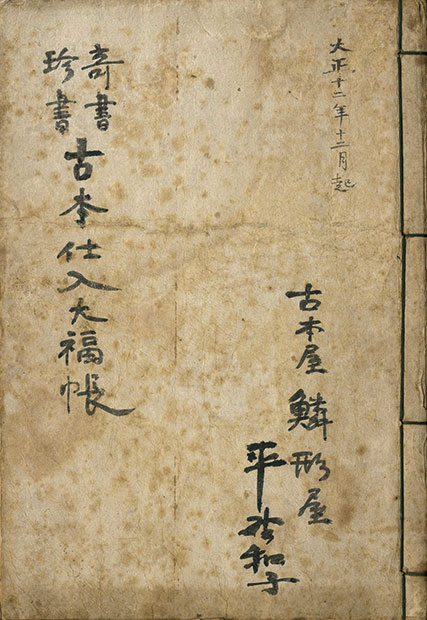 大正十二年十二月起
古本屋 鱗形屋
平和子
奇書
珍書
古本仕入大福帳